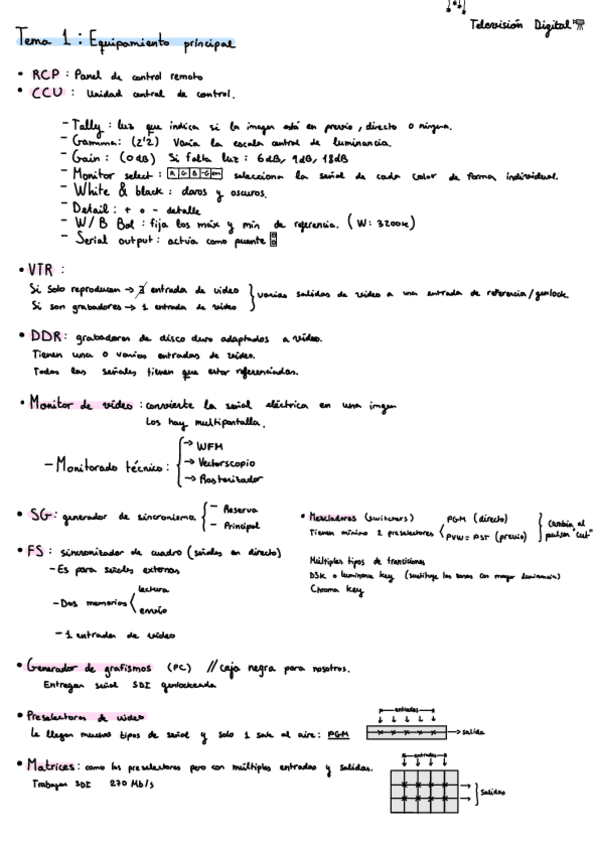 Televisión Digital
Tema 1 : Equipamiento principal
• RCP : Panel de control remoto
• CCU : Unidad central de control.
- Tally : luz que indica si la imagen está en previo, directo o ninguna.
- Gamma : (2'2) Varía la escala central de luminancia.
- Gain : (0dB) Si falta luz : 6dB, 9dB, 18dB
- Monitor select : R G B selecciona la señal de cada color de forma individual.
- White & black : claros y oscuros.
- Detail : + o - detalle
- W/B Bal : fija los máx y min de referencia. (W: 3200K)
- Serial output : actúa como puente
• VTR :
Si solo reproducen → entrada de video
Si son grabadores → 1 entrada de video
varias salidas de video a una entrada de referencia/genlock
• DDR : grabadores de disco duro adaptados a vídeo.
Tienen una o varias entradas de vídeo.
Todas las señales tienen que estar referenciadas.
• Monitor de vídeo : convierte la señal eléctrica en una imagen
Los hay multipantalla.
- Monitorado técnico :
→ WFM
→ Vectorscopio
→ Rasterizador
• SG : generador de sincronismo
- Reserva
- Principal
• FS : sincronizador de cuadro (señales en directo)
- Es para señales externas
- Dos memorias
lectura
envío
- 1 entrada de vídeo
• Mezcladores (switchers)
Tienen mínimo 2 preselectores
PGM (directo)
PVW = PST (previo)
Cambian al pulsar "cut"
Múltiples tipos de transiciones
DSK o luminance key (sustituye las zonas con mayor luminancia)
Chroma key
• Generador de grafismos (PC) // caja negra para nosotros.
Entregan señal SDI genlockeada
• Preselectores de video
Le llegan muchos tipos de señal y solo 1 sale al aire : PGM
entradas
salida
• Matrices : como los preselectores pero con múltiples entradas y salidas.
Trabajan SDI 270 Mb/s
entradas
Salidas